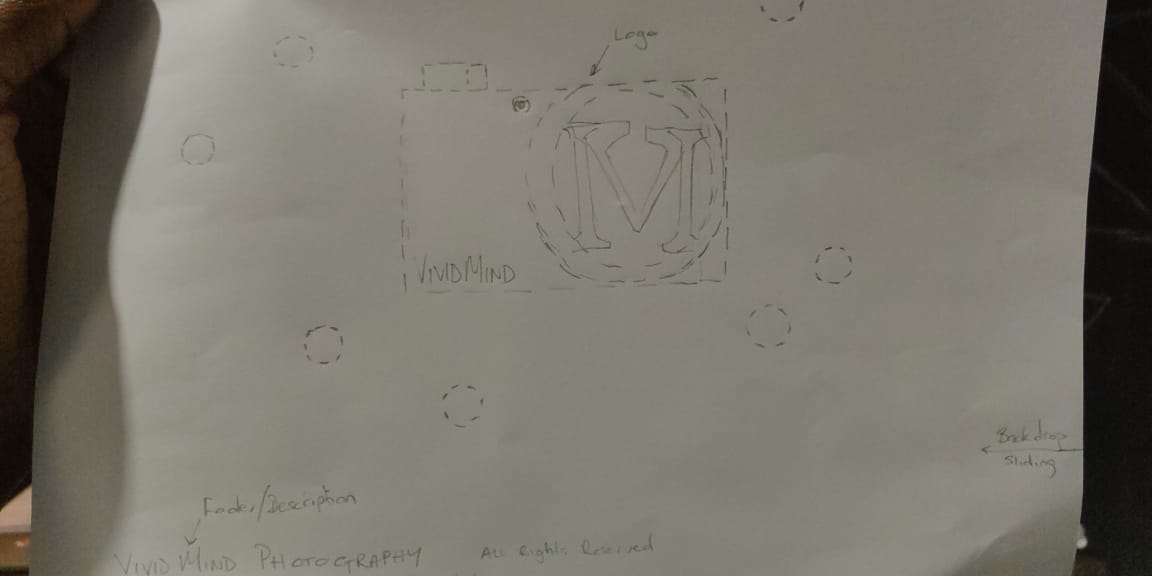 Logo
M
VIVIDMIND
Backdrop
Sliding
Footer/Description
VIVID MIND PHOTOGRAPHY All Rights Reserved